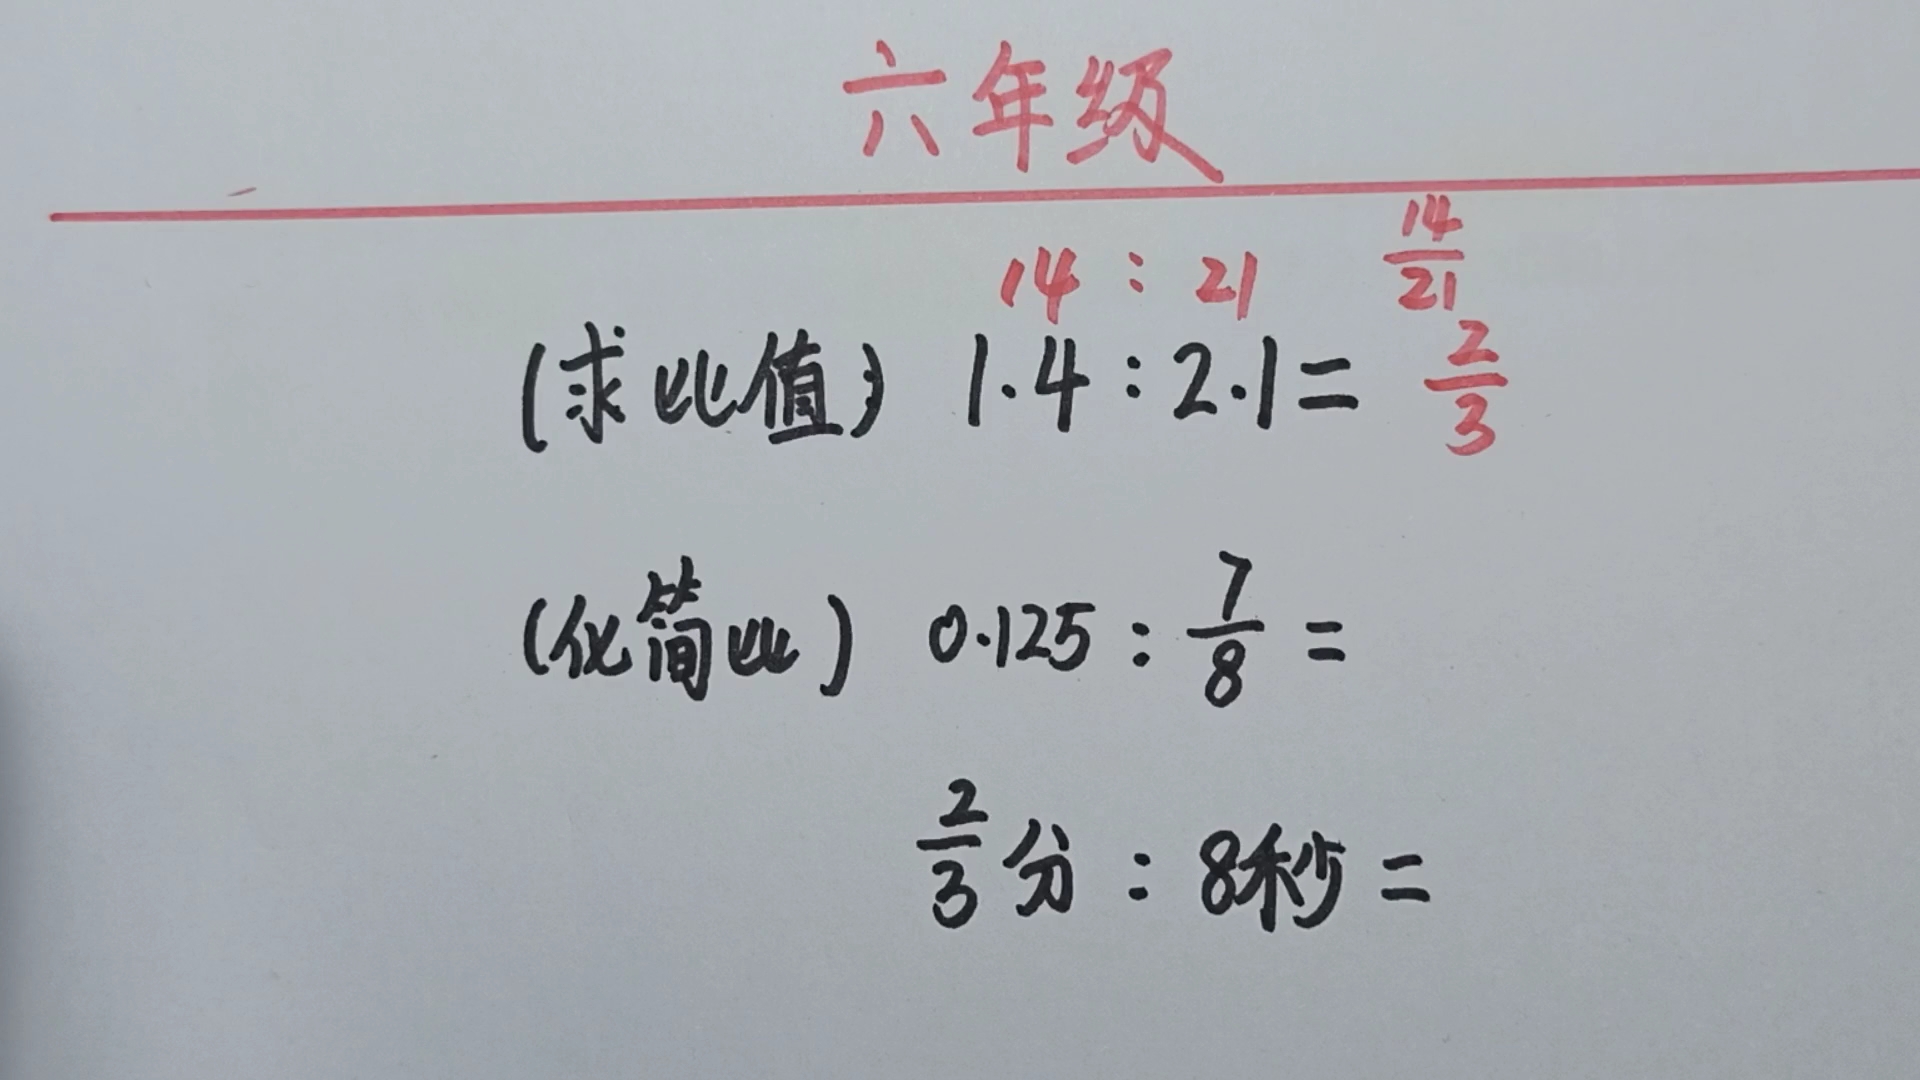 六年级
14 : 21 14/21
(求比值) 1.4 : 2.1 = 2/3
(化简比) 0.125 : 7/8 =
2/3分 : 8秒 =